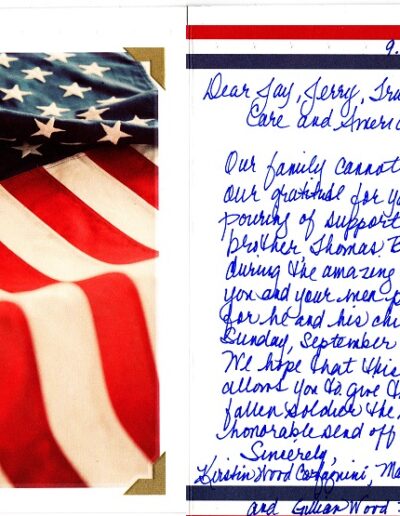 9.
Dear Jay, Jerry, Tru
Care and Americ
Our family cannot
our gratitude for yo
pouring of support
brother, Thomas
during the amazing
you and your men p
for he and his chi
Sunday, September
We hope that this
allows you to give th
fallen soldier the
honorable send off
Sincerely,
Kirstin Wood Ma
and Gillian Wood